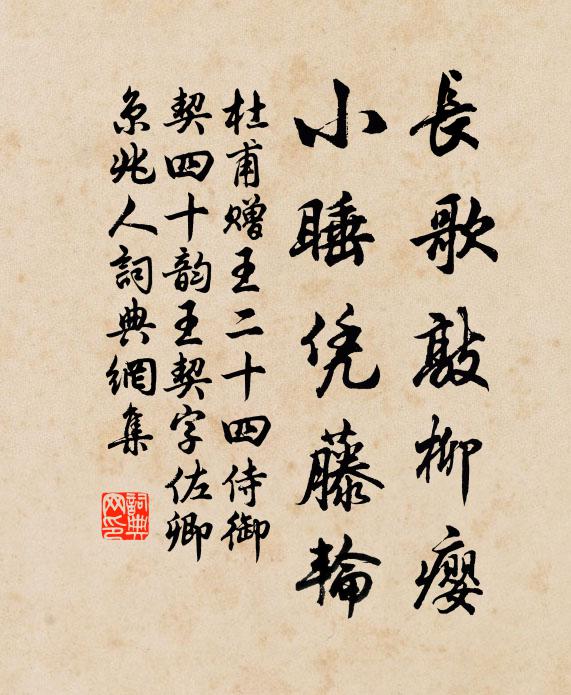 長歌敲柳癭
小睡凭藤輪
杜甫赠王二十四侍御
契四十韵王契字佐卿
京兆人詞典網集
詞典网印